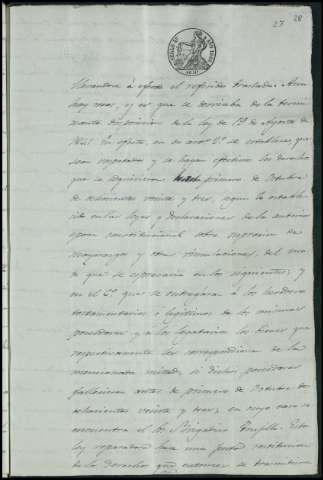 27 28
llevandose á efecto el referido traslado. Aun
hay mas, y es que se desviaba de la termi-
nante disposicion de la ley de 19 de Agosto de
1841. En efecto, en su artº 1º se establece que
sean respetados y se hagan efectivos los derechos
que se adquirieron hasta primero de Octubre
de ochocientos veinte y tres, segun lo estable-
cido en las leyes y declaraciones de la anterior
epoca constitucional sobre supresion de
mayorazgos y otras vinculaciones, del mo-
do que se espresaria en los siguientes; y
en el 6º que se entregáran á los herederos
testamentarios ó legitimos de los mismos
poseedores y á los legatarios los bienes que
respectivamente les correspondieran de la
mencionada mitad, si dichos poseedores
fallecieron antes de primero de Octubre de
ochocientos veinte y tres, en cuyo caso se
encuentra el Sr. Brigadier Trujillo. Esta
ley reparadora hace una justa restitucion
de los derechos que entonces se trasmitieron